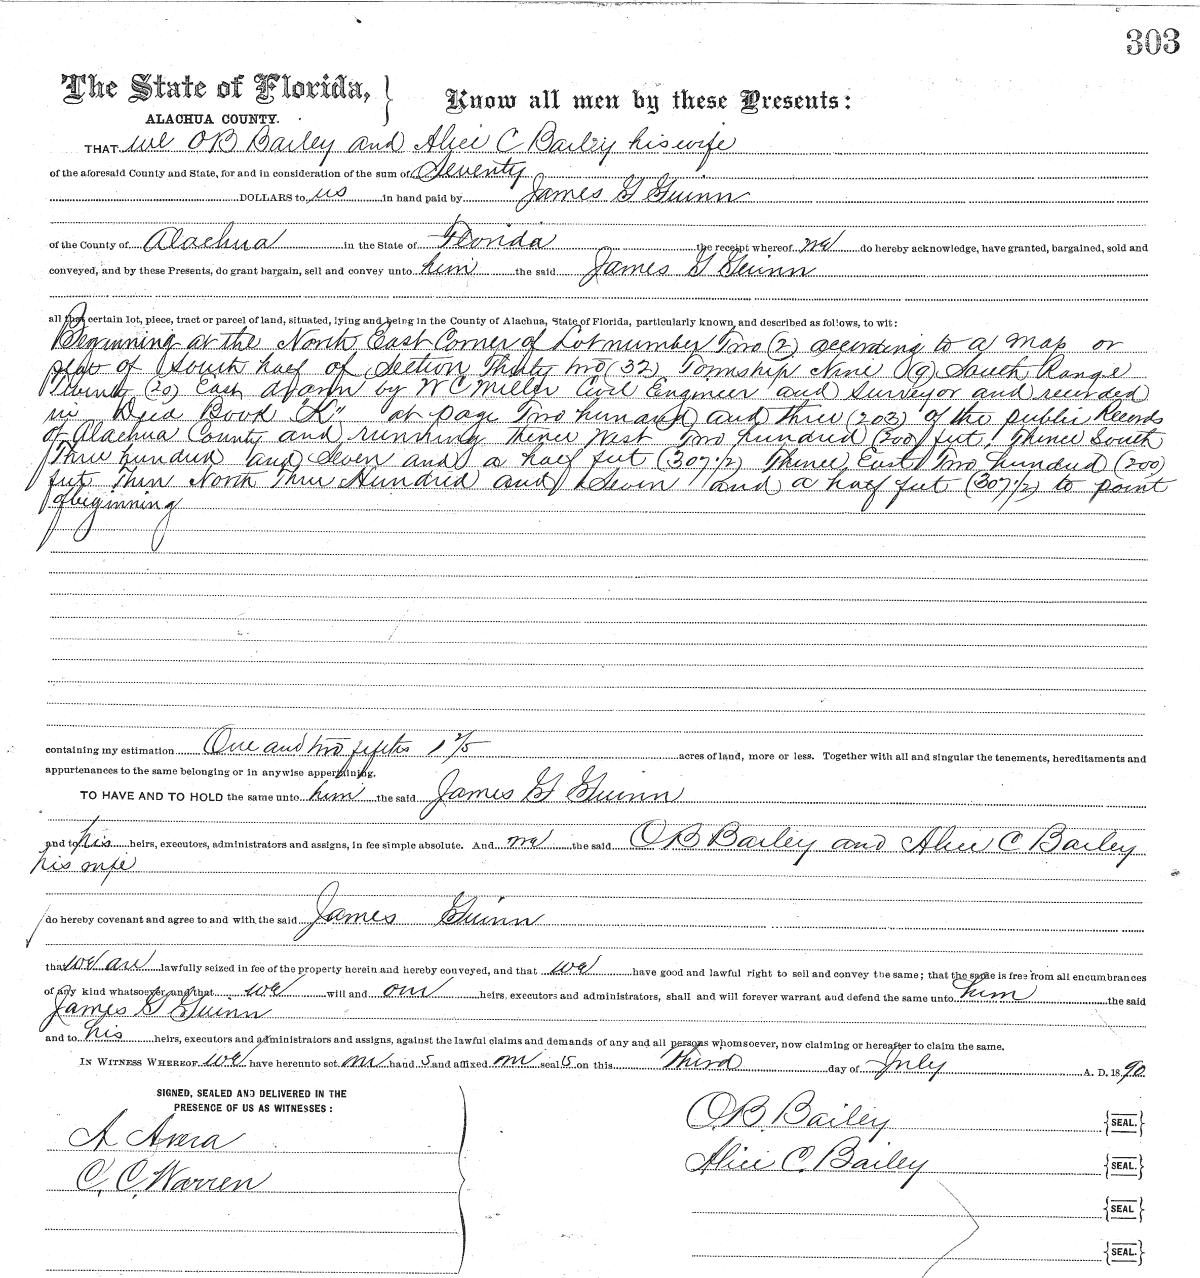 303
The State of Florida, } Know all men by these Presents:
ALACHUA COUNTY.
THAT we O B Bailey and Alice C Bailey his wife
of the aforesaid County and State, for and in consideration of the sum of Seventy
DOLLARS to us in hand paid by James G Guinn
of the County of Alachua in the State of Florida the receipt whereof we do hereby acknowledge, have granted, bargained, sold and
conveyed, and by these Presents, do grant bargain, sell and convey unto him the said James G Guinn
all that certain lot, piece, tract or parcel of land, situated, lying and being in the County of Alachua, State of Florida, particularly known and described as follows, to wit:
Beginning at the North East Corner of Lot number Two (2) according to a Map or
plat of South half of Section Thirty two (32) Township Nine (9) South Range
Twenty (20) East drawn by W C Miller Civil Engineer and Surveyor and recorded
in Deed Book "K" at page Two hundred and three (203) of the public Records
of Alachua County and running thence West Two hundred (200) feet. Thence South
Three hundred and Seven and a half feet (307 1/2) Thence East Two hundred (200)
feet Then North Three Hundred and Seven and a half feet (307 1/2) to point
of beginning
containing my estimation One and two fifths 1 2/5 acres of land, more or less. Together with all and singular the tenements, hereditaments and
appurtenances to the same belonging or in anywise appertaining.
TO HAVE AND TO HOLD the same unto him the said James G Guinn
and to his heirs, executors, administrators and assigns, in fee simple absolute. And we the said O B Bailey and Alice C Bailey
his wife
do hereby covenant and agree to and with the said James Guinn
that we are lawfully seized in fee of the property herein and hereby conveyed, and that we have good and lawful right to sell and convey the same; that the same is free from all encumbrances
of any kind whatsoever, and that we will and our heirs, executors and administrators, shall and will forever warrant and defend the same unto him the said
James G Guinn
and to his heirs, executors and administrators and assigns, against the lawful claims and demands of any and all persons whomsoever, now claiming or hereafter to claim the same.
IN WITNESS WHEREOF we have hereunto set our hand s and affixed our seal s on this Third day of July A. D. 18 90
SIGNED, SEALED AND DELIVERED IN THE
PRESENCE OF US AS WITNESSES:
O. B. Bailey {SEAL.}
A Avera
Alice C. Bailey {SEAL.}
C. C. Warren
{SEAL}
{SEAL.}